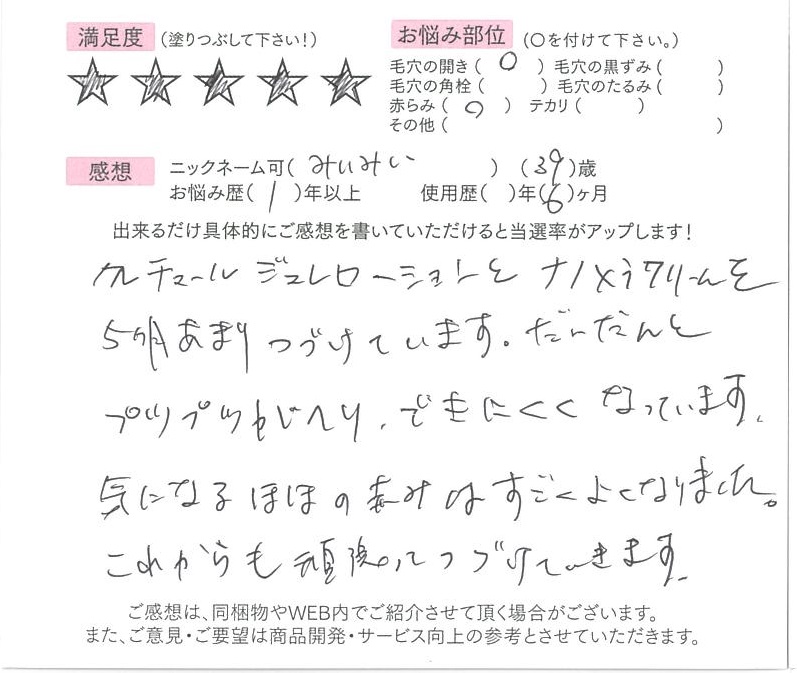 満足度 (塗りつぶして下さい!)
お悩み部位 (○を付けて下さい。)
毛穴の開き( ○ ) 毛穴の黒ずみ( )
毛穴の角栓( ) 毛穴のたるみ( )
赤らみ( ○ ) テカリ( )
その他( )
感想 ニックネーム可( みぃみぃ ) (39)歳
お悩み歴( 1 )年以上 使用歴( )年(6)ヶ月
出来るだけ具体的にご感想を書いていただけると当選率がアップします!
ジュレローションと ナノ クリームを
5ヶ月あまり つづけています。だんだんと
プツプツがへり、できにくく なっています。
気になる ほほの 赤みは すごくよくなりました。
これからも 頑張ってつづけていきます。
ご感想は、同梱物やWEB内でご紹介させて頂く場合がございます。
また、ご意見・ご要望は商品開発・サービス向上の参考とさせていただきます。